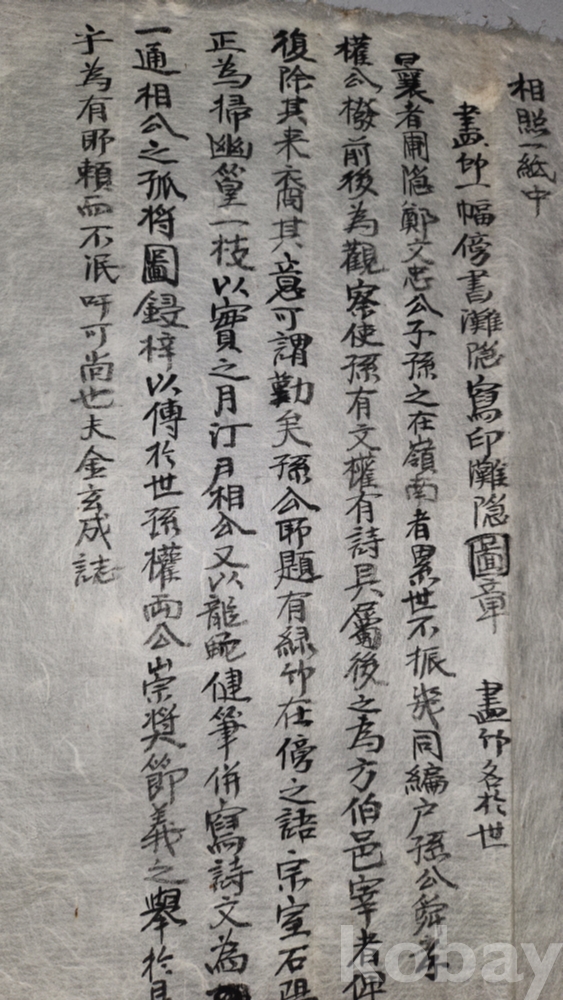 相照一紙中
畫竹一幅傍書灘隱寫印灘隱圖章 畫竹名於世
曩者圃隱鄭文忠公子孫之在嶺南者累世不振幾同編户孫公舜孝
權公橃前後為觀察使孫有文權有詩具屬後之為方伯邑宰者俾
復除其来裔其意可謂勤矣孫公所題有緑竹在傍之語宗室石陽
正為掃幽篁一枝以實之月汀月相公又以龍蛇健筆併寫詩文為
一通相公之孤将圖鋟梓以傳於世孫權兩公崇奬節義之舉於是
乎為有所賴而不泯吁可尚也夫金玄成誌
kobay